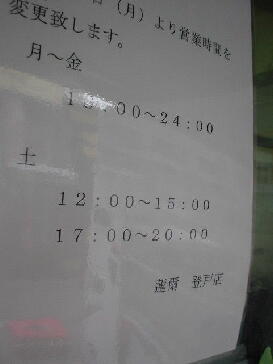 日（月）より営業時間を
変更致します。
月～金
12：00～24：00
土
12：00～15：00
17：00～20：00
登戸店